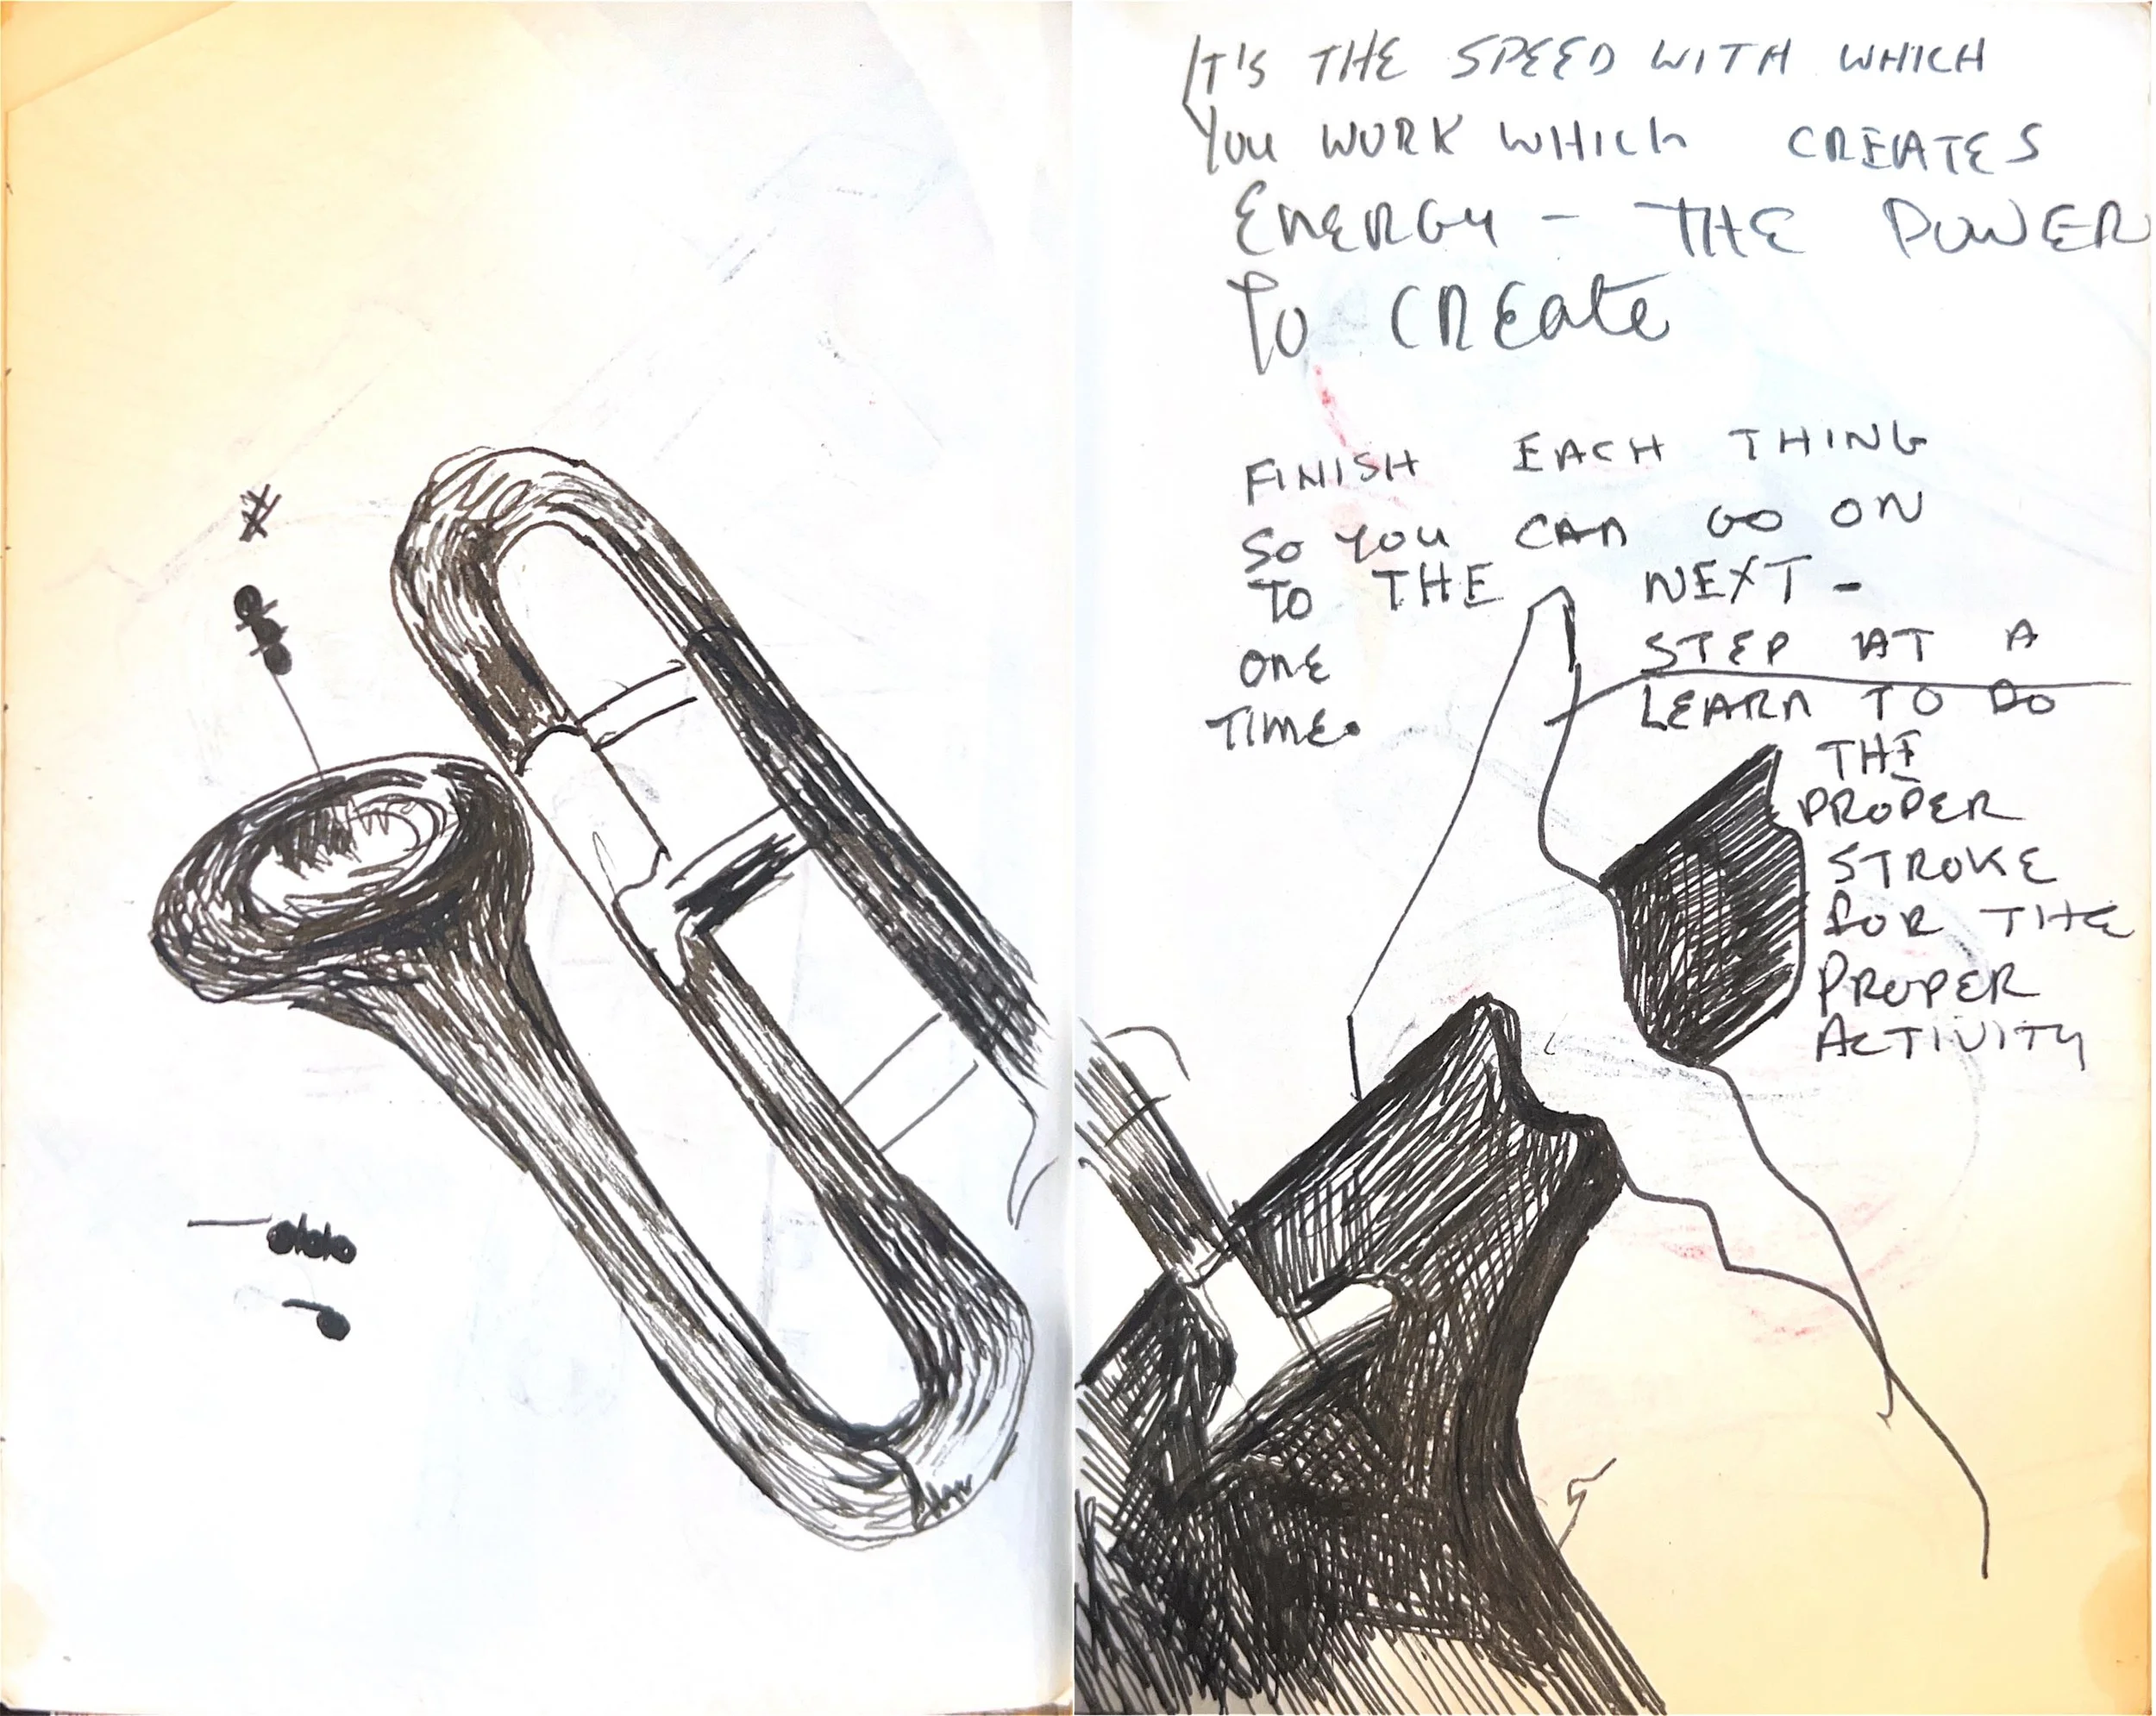 IT'S THE SPEED WITH WHICH
YOU WORK WHICH CREATES
ENERGY - THE POWER
TO CREATE
FINISH EACH THING
SO YOU CAN GO ON
TO THE NEXT -
ONE STEP AT A
TIME.
LEARN TO DO
THE
PROPER
STROKE
FOR THE
PROPER
ACTIVITY